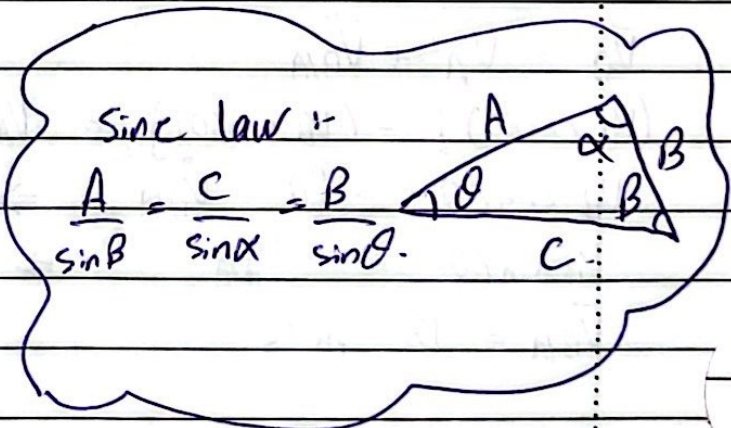 sine law :-
A/sinβ = C/sinα = B/sinθ.
A
α
B
θ
β
C